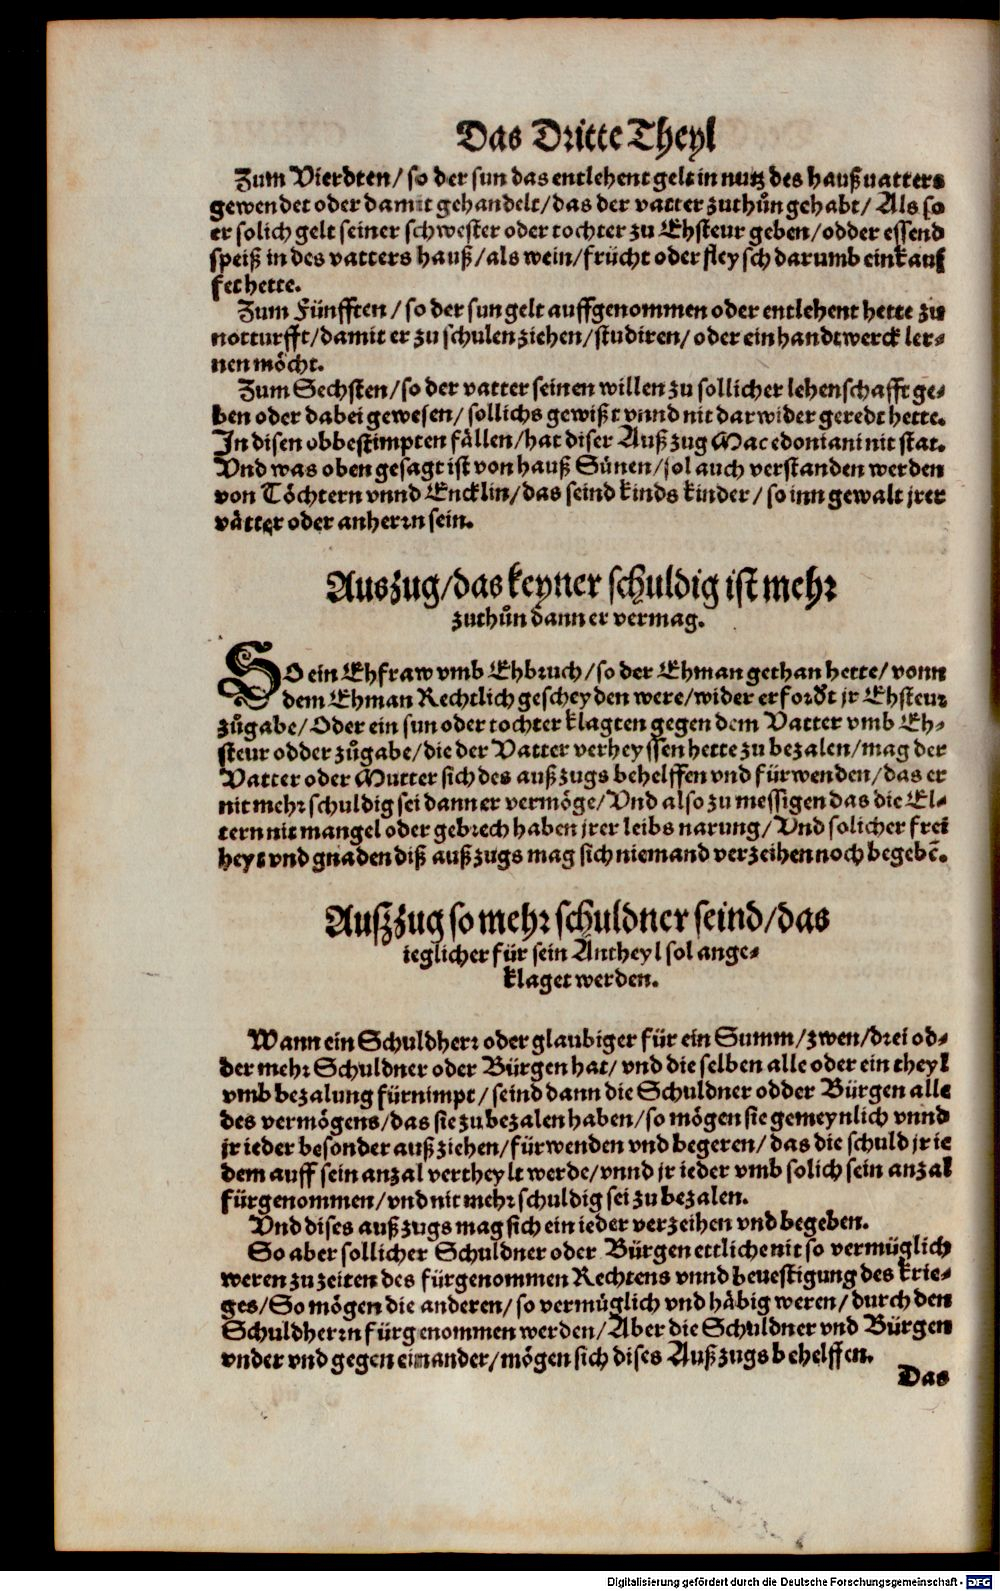 Das Dritte Theyl
Zum Vierdten/ so der sun das entlehent gelt in nutz des haußuatters
gewendet oder damit gehandelt/ das der vatter zuthůn gehabt/ Als so
er solich gelt seiner schwester oder tochter zu Ehsteur geben/ odder essend
speiß in des vatters hauß/ als wein/ frücht oder fleysch darumb einkauf
fet hette.
Zum Fünfften/ so der sun gelt auffgenommen oder entlehent hette zu
notturfft/ damit er zu schulen ziehen/ studiren/ oder ein handtwerck ler-
nen möcht.
Zum Sechsten/ so der vatter seinen willen zu sollicher lehenschafft ge-
ben oder dabei gewesen/ sollichs gewißt vnnd nit darwider geredt hette.
In disen obbestimpten fällen/ hat diser Außzug Macedoniani nit stat.
Vnd was oben gesagt ist von hauß Sünen/ sol auch verstanden werden
von Töchtern vnnd Encklin/ das seind kinds kinder/ so inn gewalt jrer
vätter oder anherrn sein.
Auszug/ das keyner schuldig ist mehr
zuthůn dann er vermag.
SO ein Ehfraw vmb Ehbruch/ so der Ehman gethan hette/ vonn
dem Ehman Rechtlich gescheyden were/ wider erfordt jr Ehsteur
zůgabe/ Oder ein sun oder tochter klagten gegen dem Vatter vmb Eh-
steur odder zůgabe/ die der Vatter verheyssen hette zu bezalen/ mag der
Vatter oder Mutter sich des außzugs behelffen vnd fürwenden/ das er
nit mehr schuldig sei dann er vermöge/ Vnd also zu messigen das die El-
tern nit mangel oder gebrech haben jrer leibs narung/ Vnd solicher frei
heyt vnd gnaden diß außzugs mag sich niemand verzeihen noch begebē.
Außzug so mehr schuldner seind/ das
ieglicher für sein Antheyl sol ange-
klaget werden.
Wann ein Schuldherr oder glaubiger für ein Summ/ zwen/ drei od-
der mehr Schuldner oder Bürgen hat/ vnd die selben alle oder ein theyl
vmb bezalung fürnimpt/ seind dann die Schuldner odder Bürgen alle
des vermögens/ das sie zubezalen haben/ so mögen sie gemeynlich vnnd
jr ieder besonder außziehen/ fürwenden vnd begeren/ das die schuld jr ie
dem auff sein anzal vertheylt werde/ vnnd jr ieder vmb solich sein anzal
fürgenommen/ vnd nit mehr schuldig sei zu bezalen.
Vnd dises außzugs mag sich ein ieder verzeihen vnd begeben.
So aber sollicher Schuldner oder Bürgen ettliche nit so vermüglich
weren zu zeiten des fürgenommen Rechtens vnnd beuestigung des krie-
ges/ So mögen die anderen/ so vermüglich vnd häbig weren/ durch den
Schuldherrn fürgenommen werden/ Aber die Schuldner vnd Bürgen
vnder vnd gegen einander/ mögen sich dises Außzugs behelffen.
Das
Digitalisierung gefördert durch die Deutsche Forschungsgemeinschaft - DFG